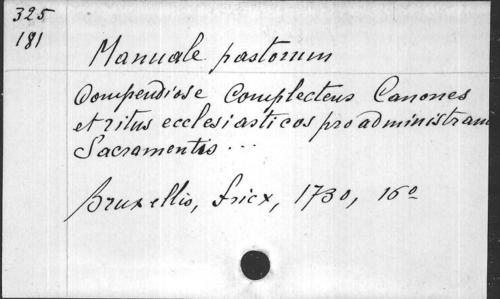 325
181
Manuale pastorum
Compendiose Complectens Canones
et ritus ecclesiasticos pro administran
Sacramentis ...
Bruxellis, Fricx, 1730, 16o